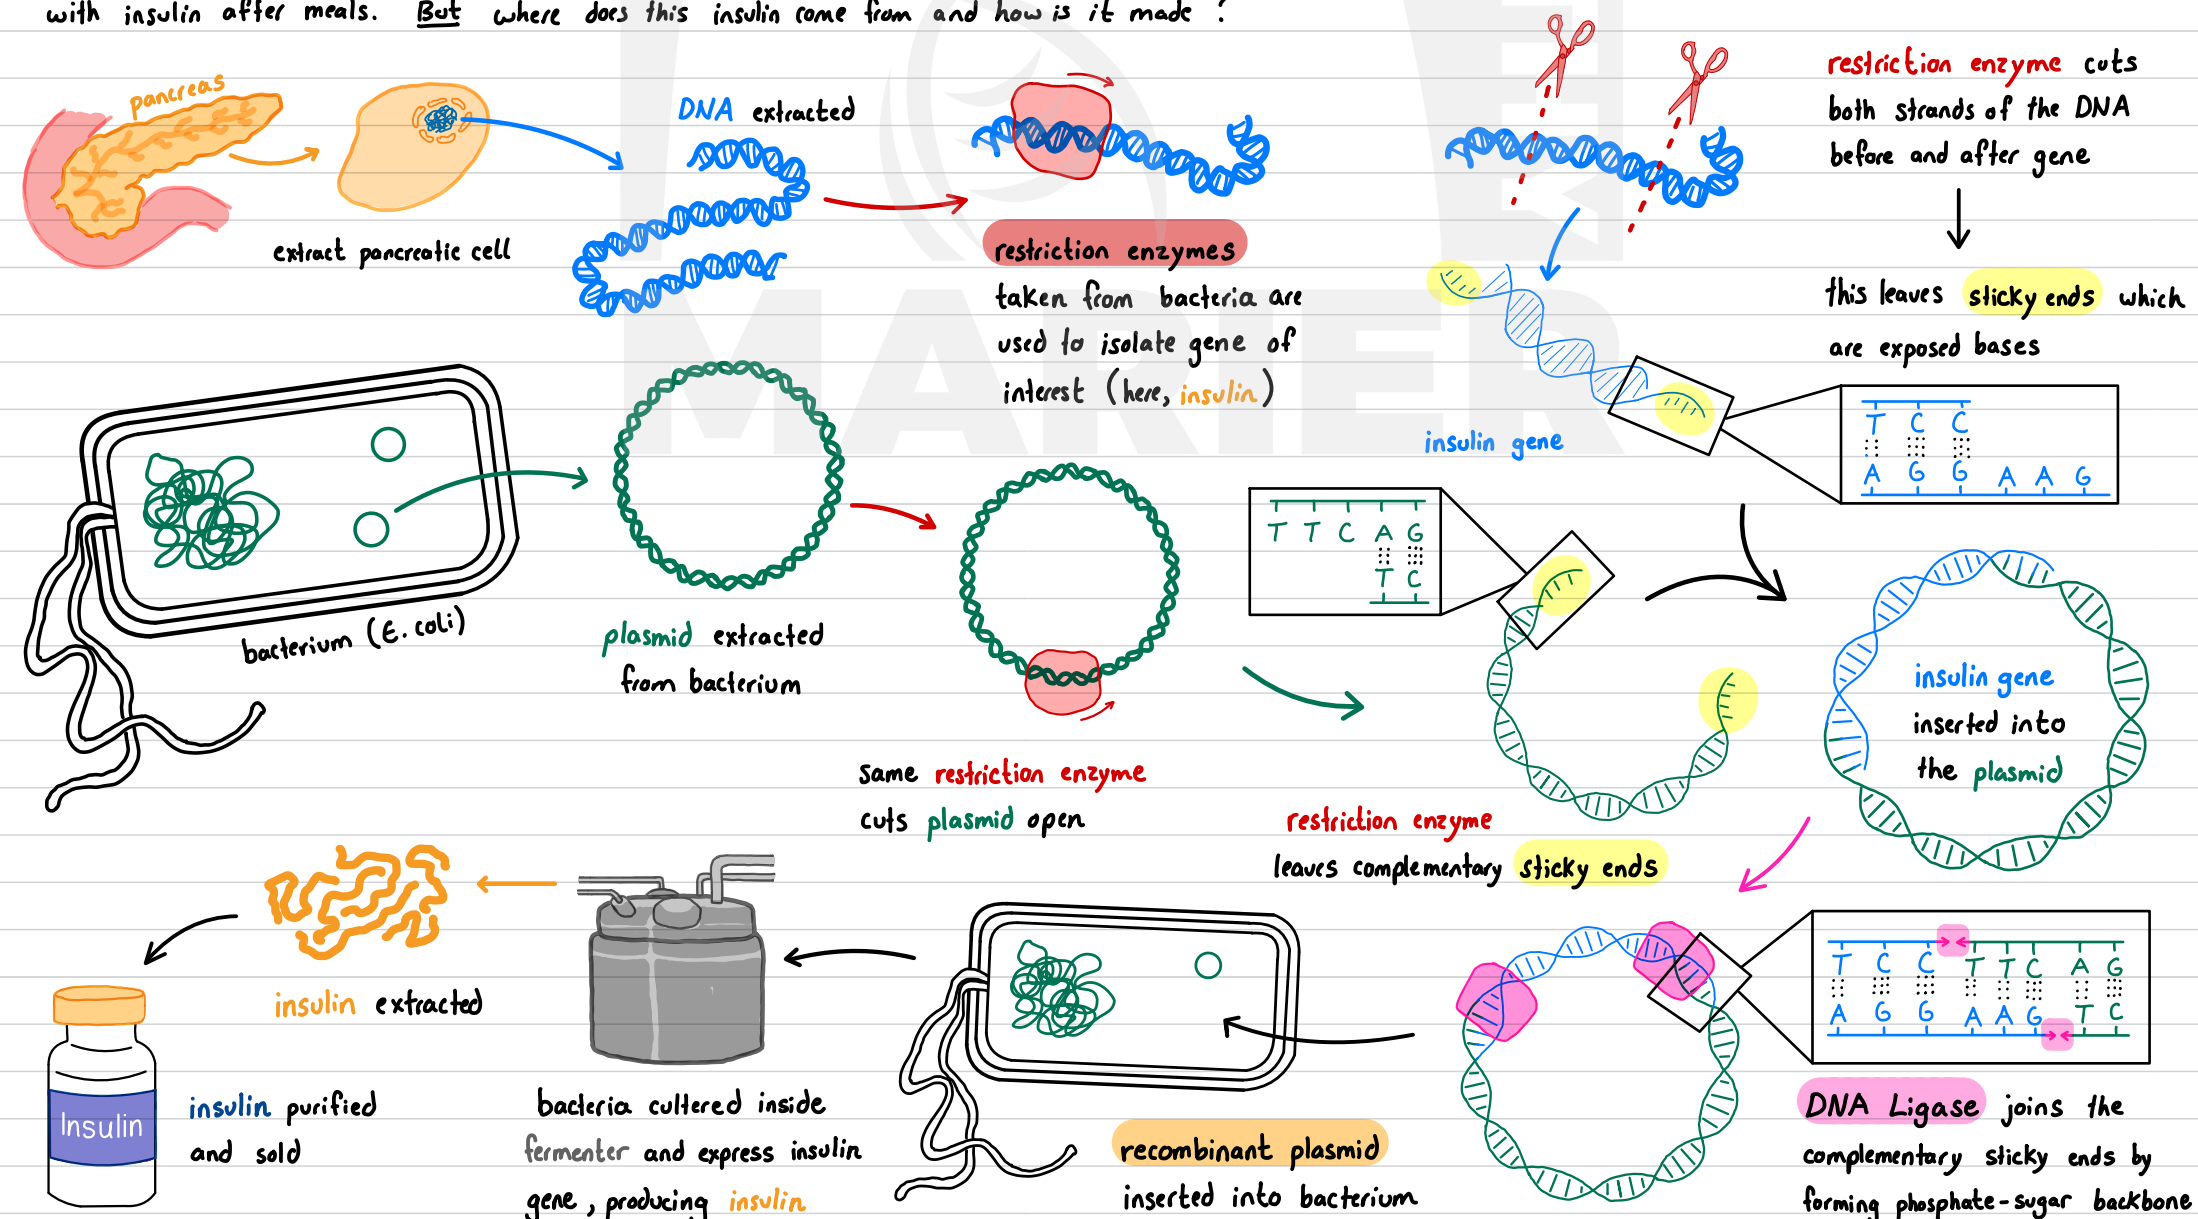 with insulin after meals. But where does this insulin come from and how is it made ?
pancreas
extract pancreatic cell
DNA extracted
restriction enzymes
taken from bacteria are
used to isolate gene of
interest (here, insulin)
restriction enzyme cuts
both strands of the DNA
before and after gene
this leaves sticky ends which
are exposed bases
insulin gene
T C C
A G G A A G
bacterium (E. coli)
plasmid extracted
from bacterium
same restriction enzyme
cuts plasmid open
T T C A G
T C
restriction enzyme
leaves complementary sticky ends
insulin gene
inserted into
the plasmid
T C C T T C A G
A G G A A G T C
DNA Ligase joins the
complementary sticky ends by
forming phosphate-sugar backbone
recombinant plasmid
inserted into bacterium
bacteria cultered inside
fermenter and express insulin
gene, producing insulin
insulin extracted
Insulin
insulin purified
and sold
MARIER